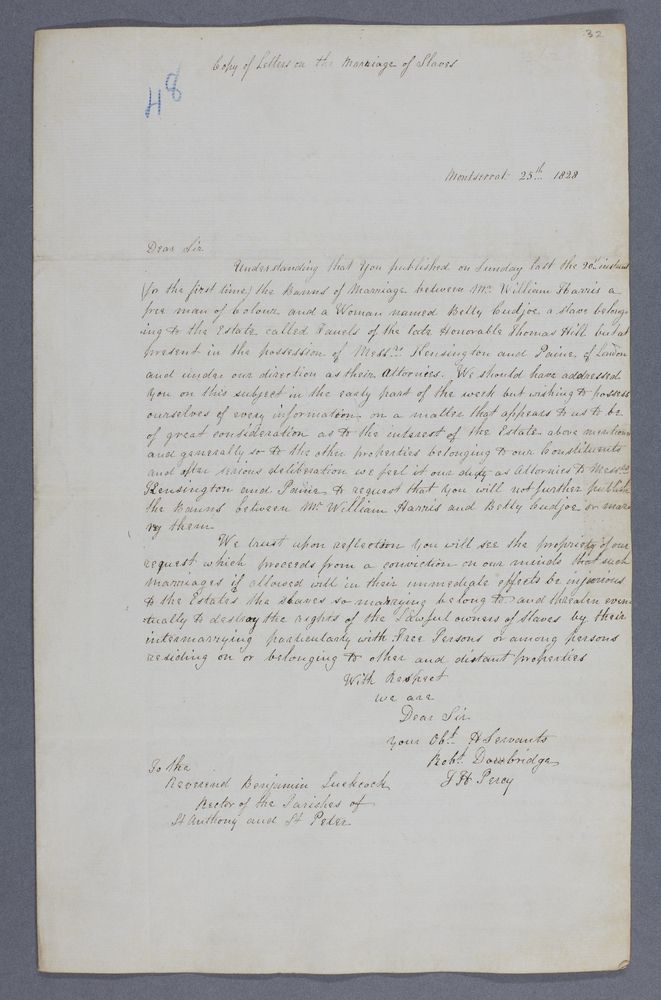 32
Copy of Letters on the Marriage of Slaves
48
Montserrat 25th 1828
Dear Sir
Understanding that You published on Sunday last the 20th instant
(for the first time) the Banns of Marriage between Mr. William Harris a
free man of Colour and a Woman named Betty Cudjoe a slave belong-
ing to the Estate called Farrels of the late Honorable Thomas Hill but at
present in the possession of Messrs Kensington and Paine, of London
and under our direction as their Attornies. We should have addressed
You on this subject in the early part of the week but wishing to possess
ourselves of every information on a matter that appears to us to be
of great consideration as to the interest of the Estate above mentioned
and generally so to the other properties belonging to our Constituents
and after serious deliberation we feel it our duty as Attornies to Messrs
Kensington and Paine to request that you will not further publish
the Banns between Mr William Harris and Betty Cudjoe or mar-
ry them
We trust upon reflection You will see the propriety of our
request which proceeds from a conviction on our minds that such
marriages if allowed will in their immediate effects be injurious
to the Estates the slaves so marrying belong to and threaten even-
tually to destroy the rights of the Lawful owners of Slaves by their
intermarrying particularly with Free Persons or among persons
residing on or belonging to other and distant properties
With Respect
we are
Dear Sir
Your Obt. H Servants
Robt. Dowbridge
J H Percy
To the
Reverend Benjamin Luckcock
Rector of the Parishes of
St Anthony and St Peter